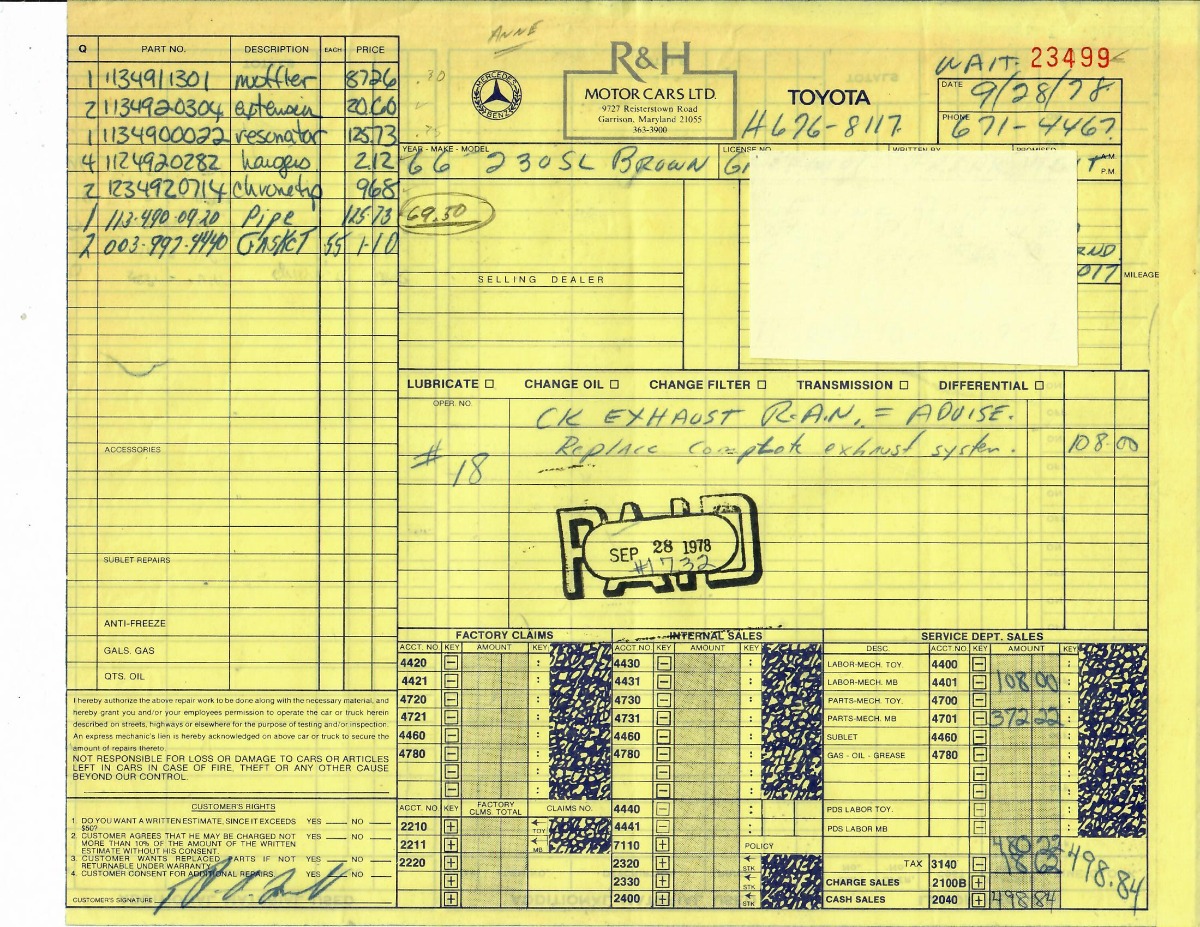 ANNE
R&H
MOTOR CARS LTD.
9727 Reisterstown Road
Garrison, Maryland 21055
363-3900
MERCEDES
BENZ
TOYOTA
WAIT. 23499
DATE 9/28/78
H 676-8117. PHONE 671-4467.
Q PART NO. DESCRIPTION EACH PRICE
1 1134911301 muffler 8726
2 1134920304 extension 20.60
1 1134900022 resonator 125.73
4 1124920282 hangers 2.12
2 1234920714 chrometip 968
1 113-490-09-20 Pipe 125.73
2 003-997-4440 GASKET 55 1-10
ACCESSORIES
SUBLET REPAIRS
ANTI-FREEZE
GALS. GAS
QTS. OIL
YEAR - MAKE - MODEL LICENSE NO. WRITTEN BY PROMISED A.M.
66 230SL BROWN P.M.
69.50
SELLING DEALER
MILEAGE
LUBRICATE CHANGE OIL CHANGE FILTER TRANSMISSION DIFFERENTIAL
OPER. NO.
CK EXHAUST R.A.N. = ADVISE.
Replace complete exhaust system. 108.00
#18
PAID
SEP 28 1978
#1732
FACTORY CLAIMS
ACCT. NO. KEY AMOUNT KEY
4420 −
4421 −
4720 −
4721 −
4460 −
4780 −
ACCT. NO. KEY FACTORY CLMS. TOTAL CLAIMS NO.
2210 + TOY
2211 + MB
2220 +
INTERNAL SALES
ACCT. NO. KEY AMOUNT KEY
4430 −
4431 −
4730 −
4731 −
4460 −
4780 −
4440 −
4441 −
7110 + POLICY
2320 + STK
2330 + STK
2400 + STK
SERVICE DEPT. SALES
DESC. ACCT. NO. KEY AMOUNT KEY
LABOR-MECH. TOY 4400 −
LABOR-MECH. MB 4401 − 108 00
PARTS-MECH. TOY. 4700 −
PARTS-MECH. MB 4701 − 372 22
SUBLET 4460 −
GAS - OIL - GREASE 4780 −
PDS LABOR TOY. −
PDS LABOR MB −
480 22
TAX 3140 − 18 62
498.84
CHARGE SALES 2100B +
CASH SALES 2040 + 498 84
I hereby authorize the above repair work to be done along with the necessary material, and
hereby grant you and/or your employees permission to operate the car or truck herein
described on streets, highways or elsewhere for the purpose of testing and/or inspection.
An express mechanic's lien is hereby acknowledged on above car or truck to secure the
amount of repairs thereto.
NOT RESPONSIBLE FOR LOSS OR DAMAGE TO CARS OR ARTICLES
LEFT IN CARS IN CASE OF FIRE, THEFT OR ANY OTHER CAUSE
BEYOND OUR CONTROL.
CUSTOMER'S RIGHTS
1. DO YOU WANT A WRITTEN ESTIMATE, SINCE IT EXCEEDS $50? YES NO
2. CUSTOMER AGREES THAT HE MAY BE CHARGED NOT MORE THAN 10% OF THE AMOUNT OF THE WRITTEN ESTIMATE WITHOUT HIS CONSENT. YES NO
3. CUSTOMER WANTS REPLACED PARTS IF NOT RETURNABLE UNDER WARRANTY. YES NO
4. CUSTOMER CONSENT FOR ADDITIONAL REPAIRS. YES NO
CUSTOMER'S SIGNATURE